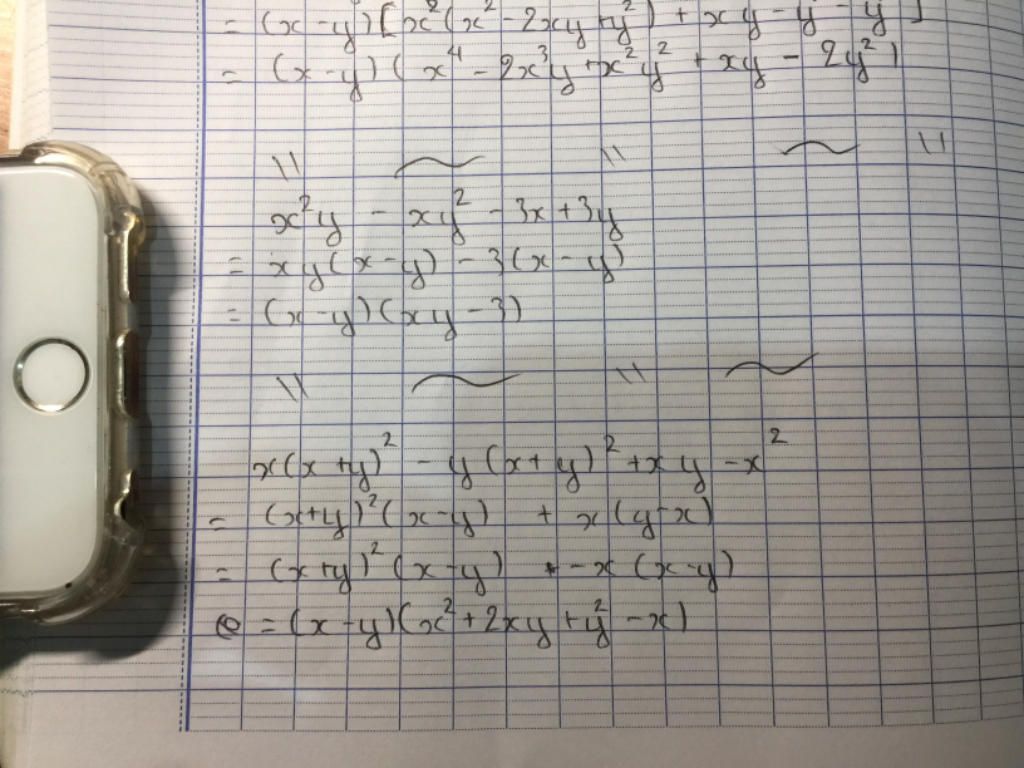 = (x-y)[x²(x²-2xy+y²)+xy-y²-y²]
= (x-y)(x⁴-2x³y+x²y²+xy-2y²)
x²y - xy² - 3x + 3y
= xy(x-y) - 3(x-y)
= (x-y)(xy-3)
x(x+y)² - y(x+y)² + xy - x²
= (x+y)²(x-y) + x(y-x)
= (x+y)²(x-y) - x(x-y)
= (x-y)(x²+2xy+y²-x)